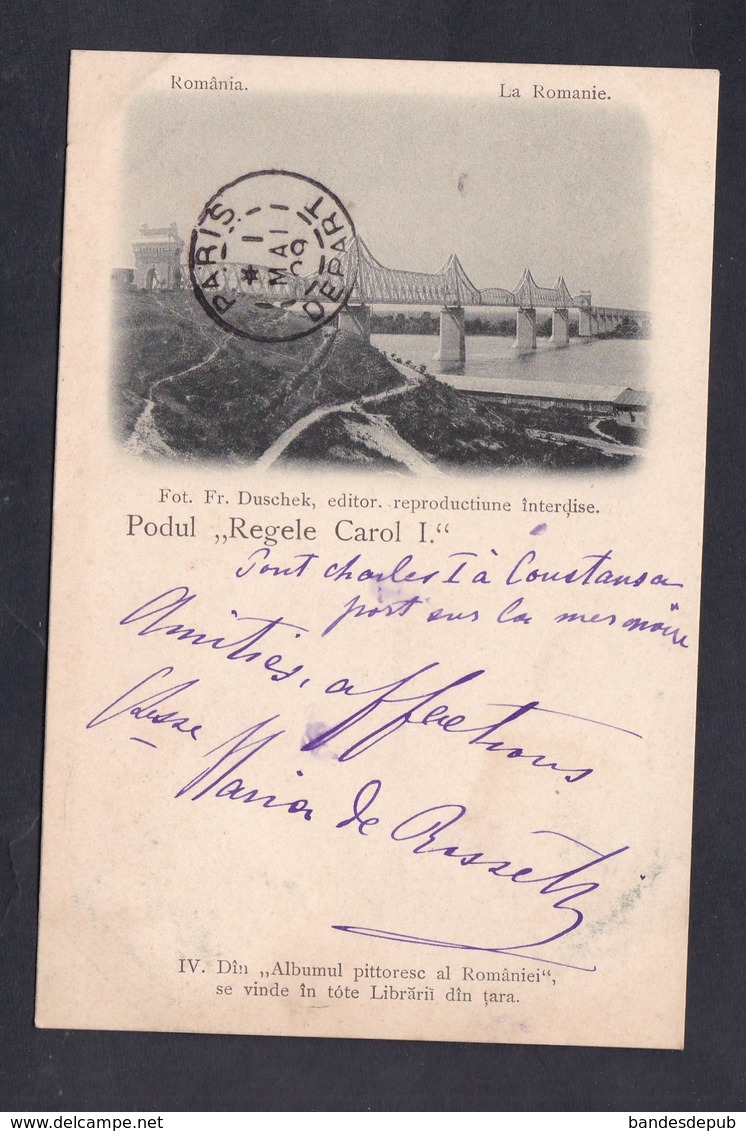 România. La Romanie.
PARIS
* 1
MAI
09
DEPART
Fot. Fr. Duschek, editor. reproductiune înterḑise.
Podul „Regele Carol I.“
Pont charles I à Constansa
port sur la mer noire
Amitiés, affections
Maria de Rossetti
IV. Dîn „Albumul pittoresc al României“,
se vinde în tóte Librării dîn țara.
delcampe.net
bandesdepub